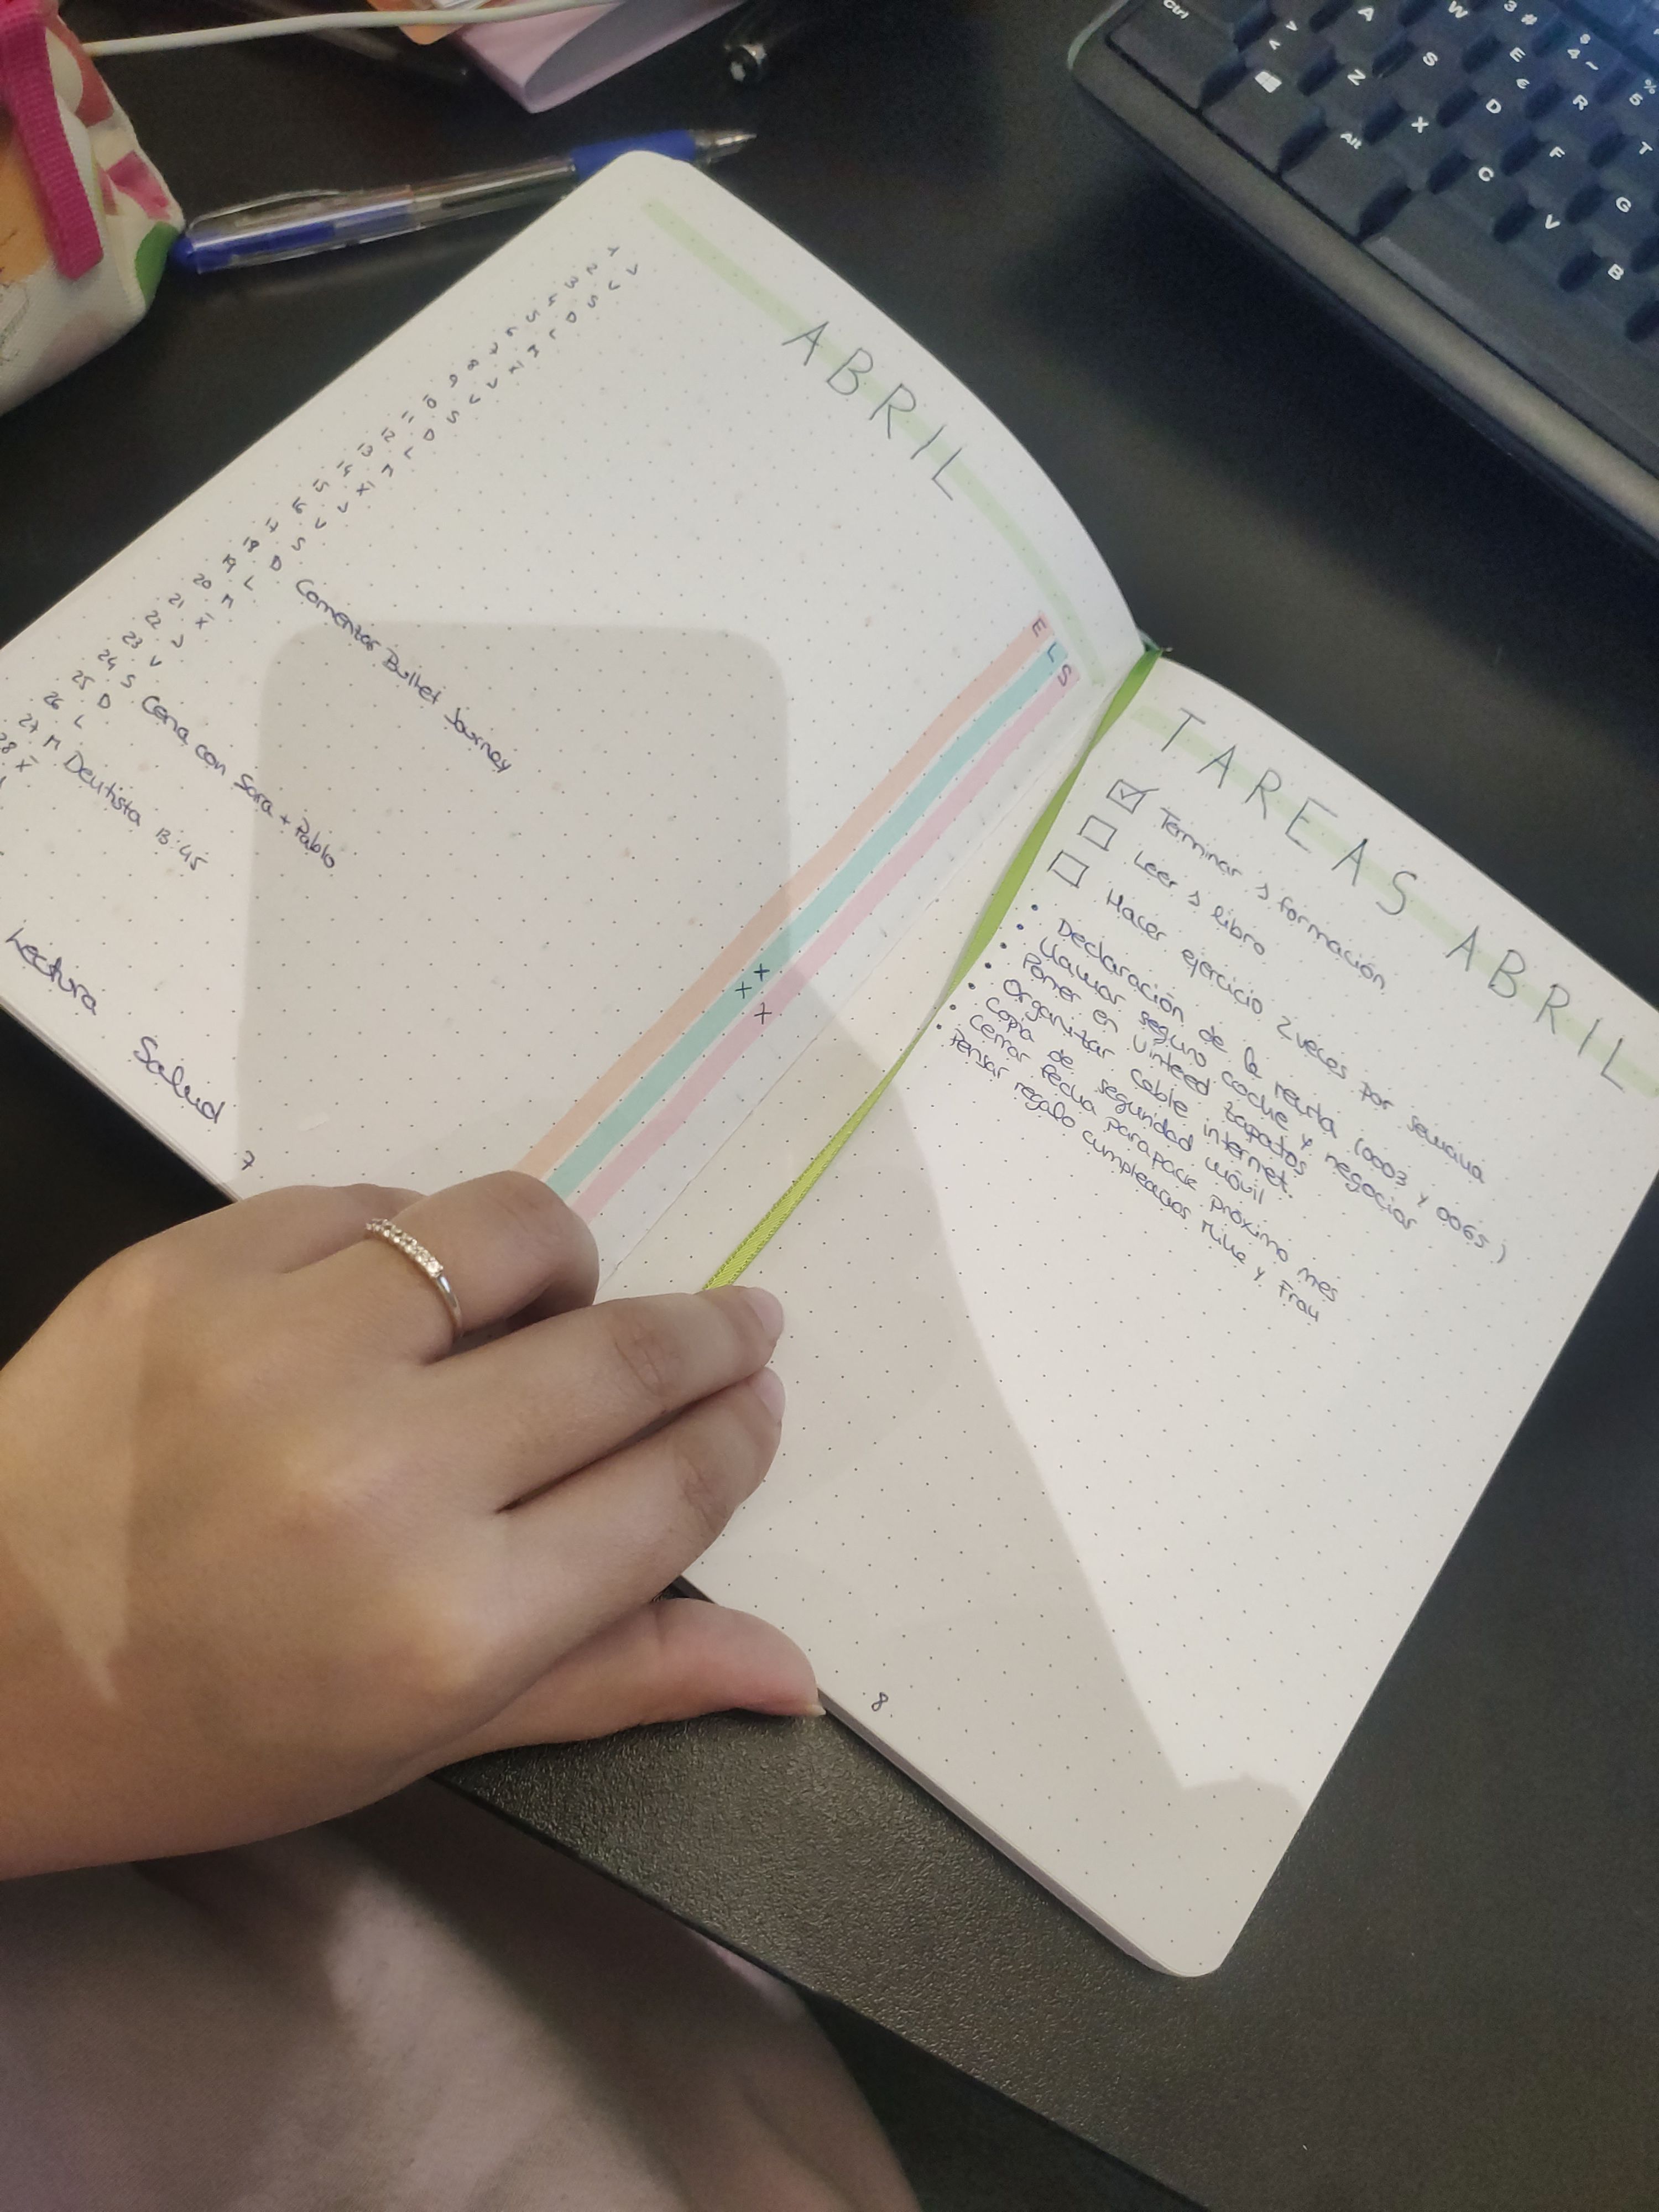 ABRIL
E L S
1 J
2 V
3 S
4 D
5 L
6 M
7 X
8 J
9 V
10 S
11 D
12 L
13 M
14 X
15 J
16 V
17 S
18 D Comenzar Bullet Journey
19 L
20 M
21 X
22 J
23 V
24 S Cena con Sara + Pablo
25 D
26 L
27 M Dentista 13:45
28 X
X
X
X
Lectura Salud
7
TAREAS ABRIL
Terminar 1 formación
Leer 1 libro
Hacer ejercicio 2 veces por semana
• Declaración de la renta (0003 y 0065)
• Llamar seguro coche y negocios
• Poner en Vinteed zapatos
• Organizar cable internet.
• Copia de seguridad móvil
• Cerrar fecha para pack próximo mes
• Pensar regalo cumpleaños Mike y Frau
8
Ctrl
Alt
A
W
3 #
S
E €
$ 4 ~
Z
D
R
% 5
X
F
T
C
G
V
B